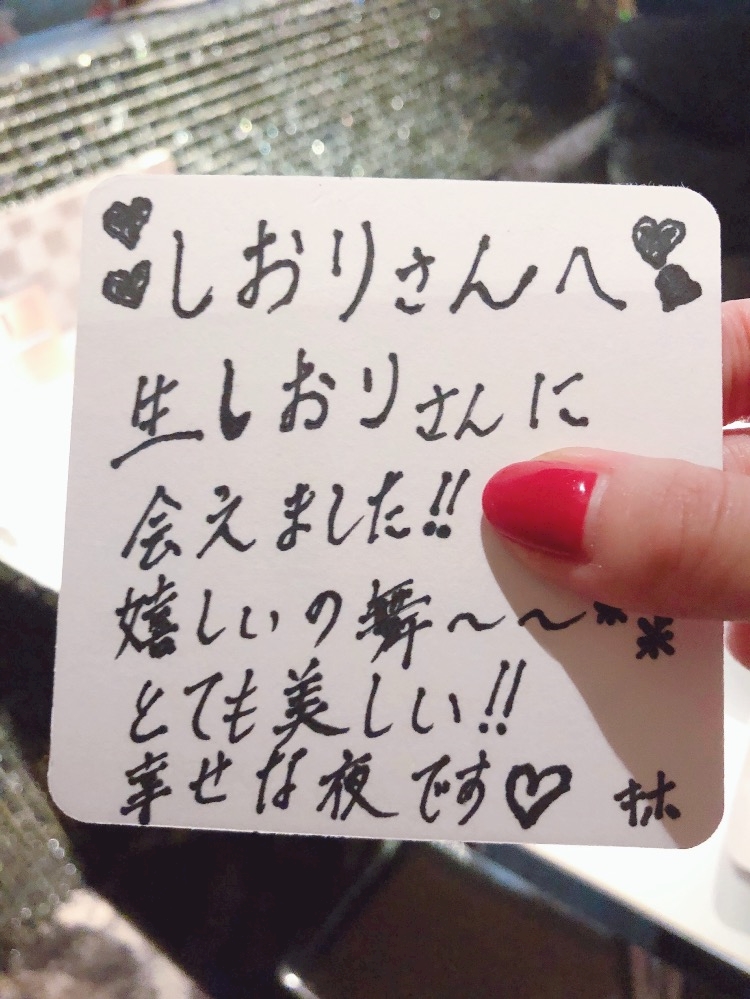 しおりさんへ
生しおりさんに
会えました!!
嬉しいの舞〜〜**
とても美しい!!
幸せな夜です♡ 林